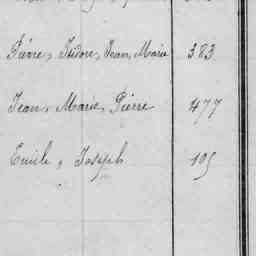 Pierre, Isidore, Jean, Marie 383
Jean, Marie, Pierre 477
Emile, Joseph 105